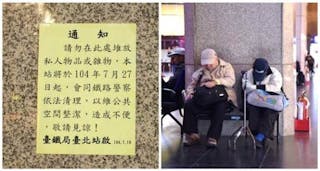 通 知
請勿在此處堆放
私人物品或雜物，本
站將於104年7月27
日起，會同鐵路警察
依法清理，以維公共
空間整潔，造成不便
，敬請見諒！
臺鐵局臺北站啟 104.7.18